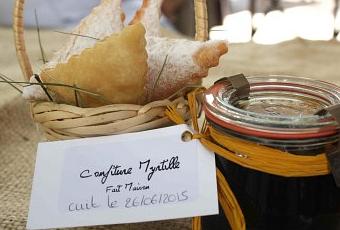 Confiture Myrtille
Fait Maison
cuit le 26/06/2015